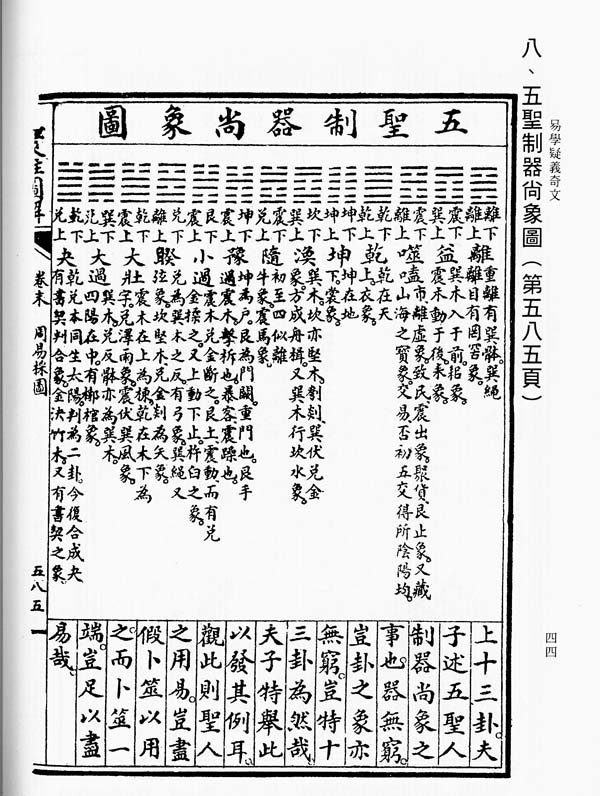 易學疑義奇文
八、五聖制器尚象圖(第五八五頁)
四四
五聖制器尚象圖
離下
離上
離
重離有巽骸。巽繩
離目有罔罟象。
震下
巽上
益
巽木入于前。耜象。
震木動于後。耒象。
震下
離上
噬嗑
市離虛象。致民震出象。聚貨艮止象。又藏
山海之寶象。交易否初五交。得所陰陽均。
乾下
乾上
乾
乾在天
上。衣象。
坤下
坤上
坤
坤在地
下。裳象。
坎下
巽上
渙
巽木坎亦堅木。刳剡。巽伏兌金
象。方成舟楫。又巽木行坎水象。
震下
兌上
隨
初至四似離
牛象。震馬象。
坤下
震上
豫
坤為戶。艮為門闕。重門也。艮手
遇震木。擊柝也。暴客震躁也。
艮下
震上
小過
震木兌金斷之。艮土震動而有兌
金揍之。又上動下止。杵臼之象。
兌下
離上
睽
兌為巽木之反。有弓象。巽繩又
弦象。坎堅木兌金剡為矢象。
乾下
震上
大壯
震木在上為棟。乾在木下為
宇。兌澤雨象。震伏巽風象。
巽下
兌上
大過
巽木。兌反骸亦為巽木。
四陽在中。有槨棺象。
乾下
兌上
夬
乾兌本同生太陽。判為二卦。今復合成夬
有書契判合象。金決竹木。又有書契之象。
上十三卦。夫
子述五聖人
制器尚象之
事也。器無窮。
豈卦之象亦
無窮。豈特十
三卦為然哉。
夫子特舉此
以發其例耳。
觀此則聖人
之用易。豈盡
假卜筮以用
之。而卜筮一
端。豈足以盡
易哉。
卷末
周易採圖
五八五